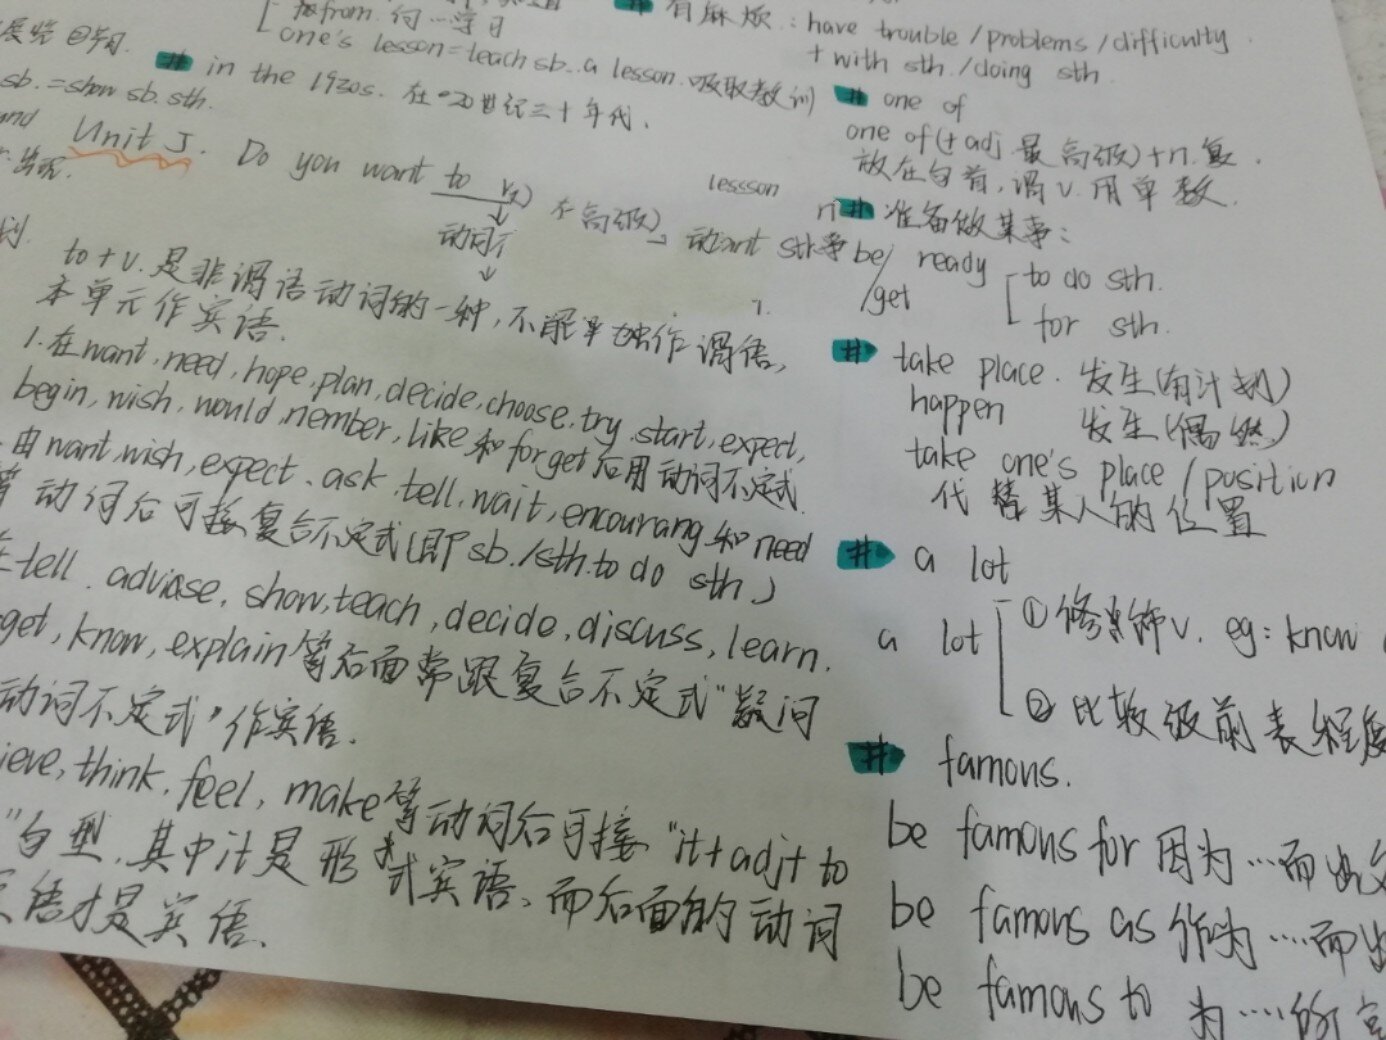 from. 向…学习
one's lesson=teach sb. a lesson. 吸取教训
sb.=show sb. sth.
# in the 1930s. 在 20世纪三十年代.
and
出现.
Unit 5. Do you want to
动词不
lessson
to+v. 是非谓语动词的一种,不能单独作谓语,
本单元作宾语.
1.在want, need, hope, plan, decide, choose, try, start, expect,
begin, wish, would, nember, like 和 forget后用动词不定式.
由want, wish, expect, ask, tell, wait, encourang 和 need
等动词后可接复合不定式(即 sb./sth. to do sth.)
在tell, adviase, show, teach, decide, discuss, learn.
get, know, explain 等后面常跟复合不定式"疑问
动词不定式"作宾语.
ieve, think, feel, make等动词后可接 "it+adj+to
"句型,其中it是形式宾语,而后面的动词
才是宾语.
# 有麻烦: have trouble/problems/difficulty
+with sth./doing sth.
# one of
one of(+adj 最高级)+n.复.
放在句首,谓v.用单数.
# 准备做某事:
be/ ready to do sth.
/get for sth.
# take place. 发生(有计划)
happen 发生(偶然)
take one's place/position
代替某人的位置
# a lot
a lot ①修饰v. eg: know
②比较级前表程度
# famous.
be famous for 因为…而出
be famous as 作为…而出
be famous to 为…所